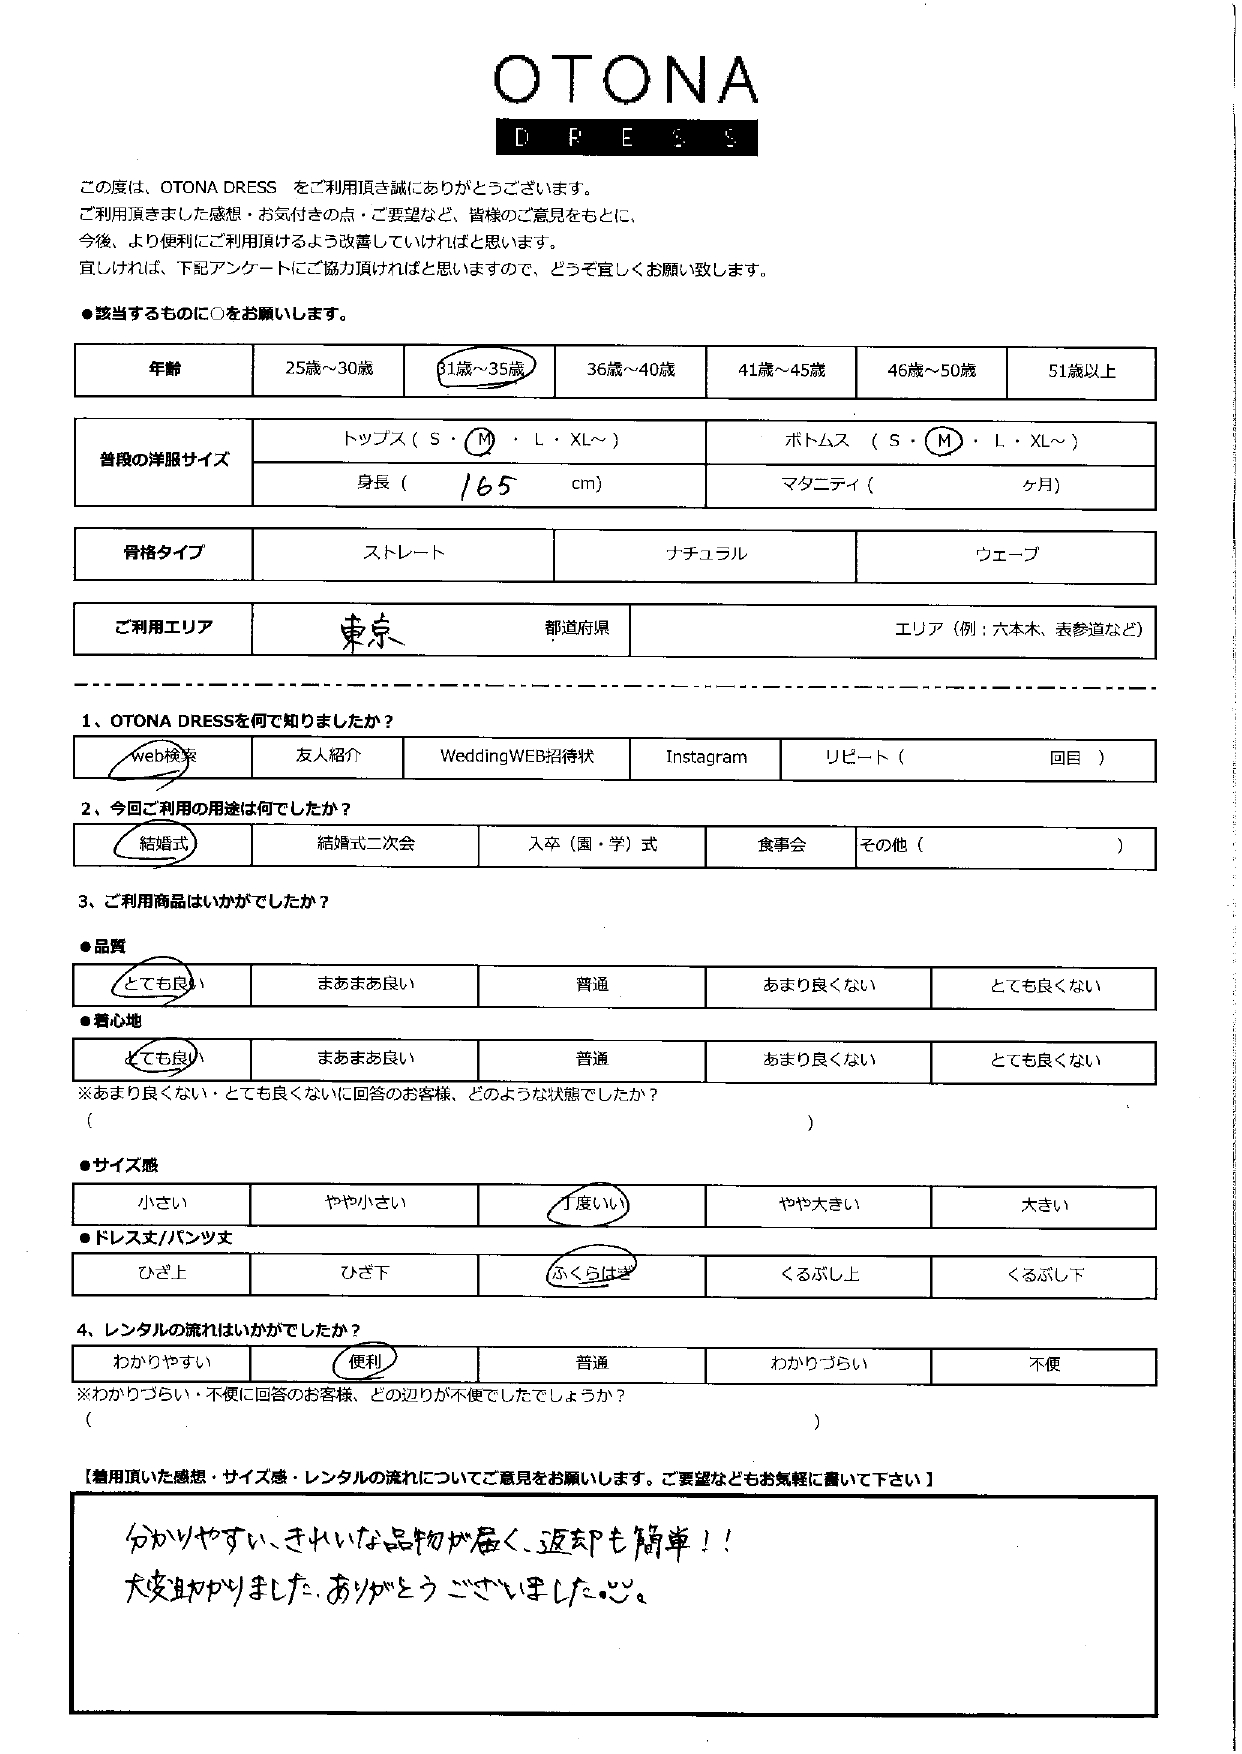 OTONA
DRESS
この度は、OTONA DRESS　をご利用頂き誠にありがとうございます。
ご利用頂きました感想・お気付きの点・ご要望など、皆様のご意見をもとに、
今後、より便利にご利用頂けるよう改善していければと思います。
宜しければ、下記アンケートにご協力頂ければと思いますので、どうぞ宜しくお願い致します。
●該当するものに○をお願いします。
年齢 25歳～30歳 31歳～35歳 36歳～40歳 41歳～45歳 46歳～50歳 51歳以上
普段の洋服サイズ トップス ( S ・ M ・ L ・ XL～ ) ボトムス ( S ・ M ・ L ・ XL～ )
身長 ( 165 cm) マタニティ ( ヶ月)
骨格タイプ ストレート ナチュラル ウェーブ
ご利用エリア 東京 都道府県 エリア（例：六本木、表参道など）
1、OTONA DRESSを何で知りましたか？
web検索 友人紹介 WeddingWEB招待状 Instagram リピート ( 回目 )
2、今回ご利用の用途は何でしたか？
結婚式 結婚式二次会 入卒（園・学）式 食事会 その他 ( )
3、ご利用商品はいかがでしたか？
●品質
とても良い まあまあ良い 普通 あまり良くない とても良くない
●着心地
とても良い まあまあ良い 普通 あまり良くない とても良くない
※あまり良くない・とても良くないに回答のお客様、どのような状態でしたか？
( )
●サイズ感
小さい やや小さい 丁度いい やや大きい 大きい
●ドレス丈/パンツ丈
ひざ上 ひざ下 ふくらはぎ くるぶし上 くるぶし下
4、レンタルの流れはいかがでしたか？
わかりやすい 便利 普通 わかりづらい 不便
※わかりづらい・不便に回答のお客様、どの辺りが不便でしたでしょうか？
( )
【着用頂いた感想・サイズ感・レンタルの流れについてご意見をお願いします。ご要望などもお気軽に書いて下さい】
分かりやすい、きれいな品物が届く、返却も簡単！！
大変助かりました、ありがとうございました。